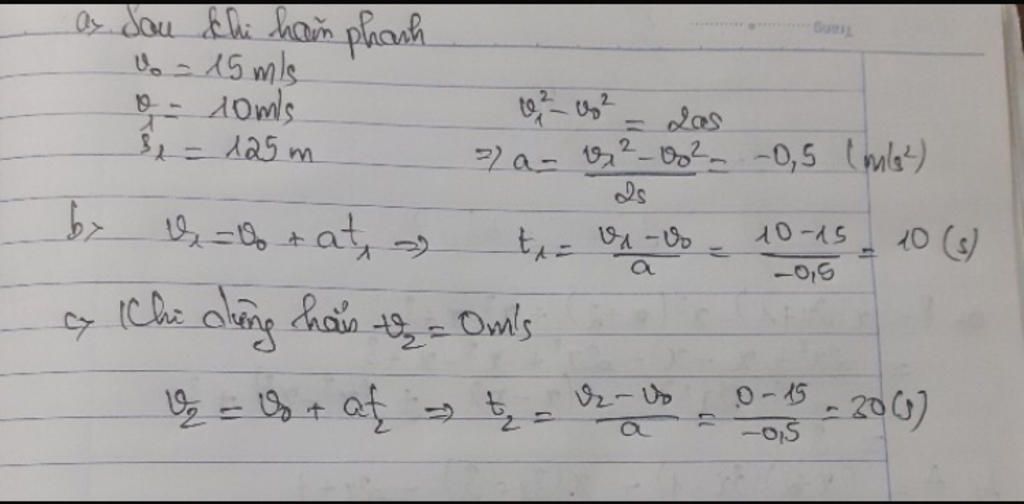 a> Sau khi hãm phanh
v₀ = 15 m/s
v₁ = 10 m/s
v₁² - v₀² = 2as
s₁ = 125 m ⇒ a = (v₁² - v₀²)/2s = -0,5 (m/s²)
b> v₁ = v₀ + at₁ ⇒ t₁ = (v₁ - v₀)/a = (10 - 15)/-0,5 = 10 (s)
c> Khi dừng hẳn v₂ = 0 m/s
v₂ = v₀ + at₂ ⇒ t₂ = (v₂ - v₀)/a = (0 - 15)/-0,5 = 30 (s)